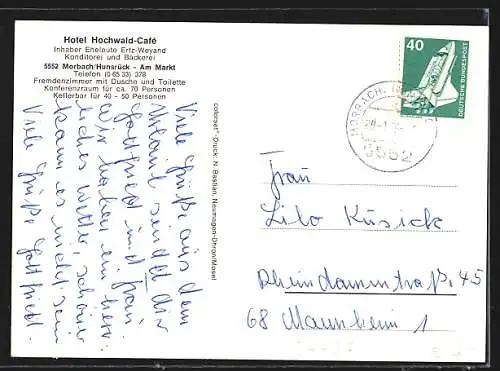 Hotel Hochwald-Café
Inhaber Eheleute Ertz-Weyand
Konditorei und Bäckerei
5552 Morbach/Hunsrück - Am Markt
Telefon (0 65 33) 378
Fremdenzimmer mit Dusche und Toilette
Konferenzraum für ca. 70 Personen
Kellerbar für 40 - 50 Personen
Viele Grüße aus dem
Urlaub sendet dir
Gottfried und Frau.
Wir haben ein herr-
liches Wetter, schöner
kann es nicht sein
Viele Grüße Gottfried.
colorset®-Druck: N. Bastian, Neumagen-Dhron/Mosel
40
DEUTSCHE BUNDESPOST
MORBACH,
5552
Frau
Lilo Küsick
Rheindammstraß. 45
68 Mannheim 1